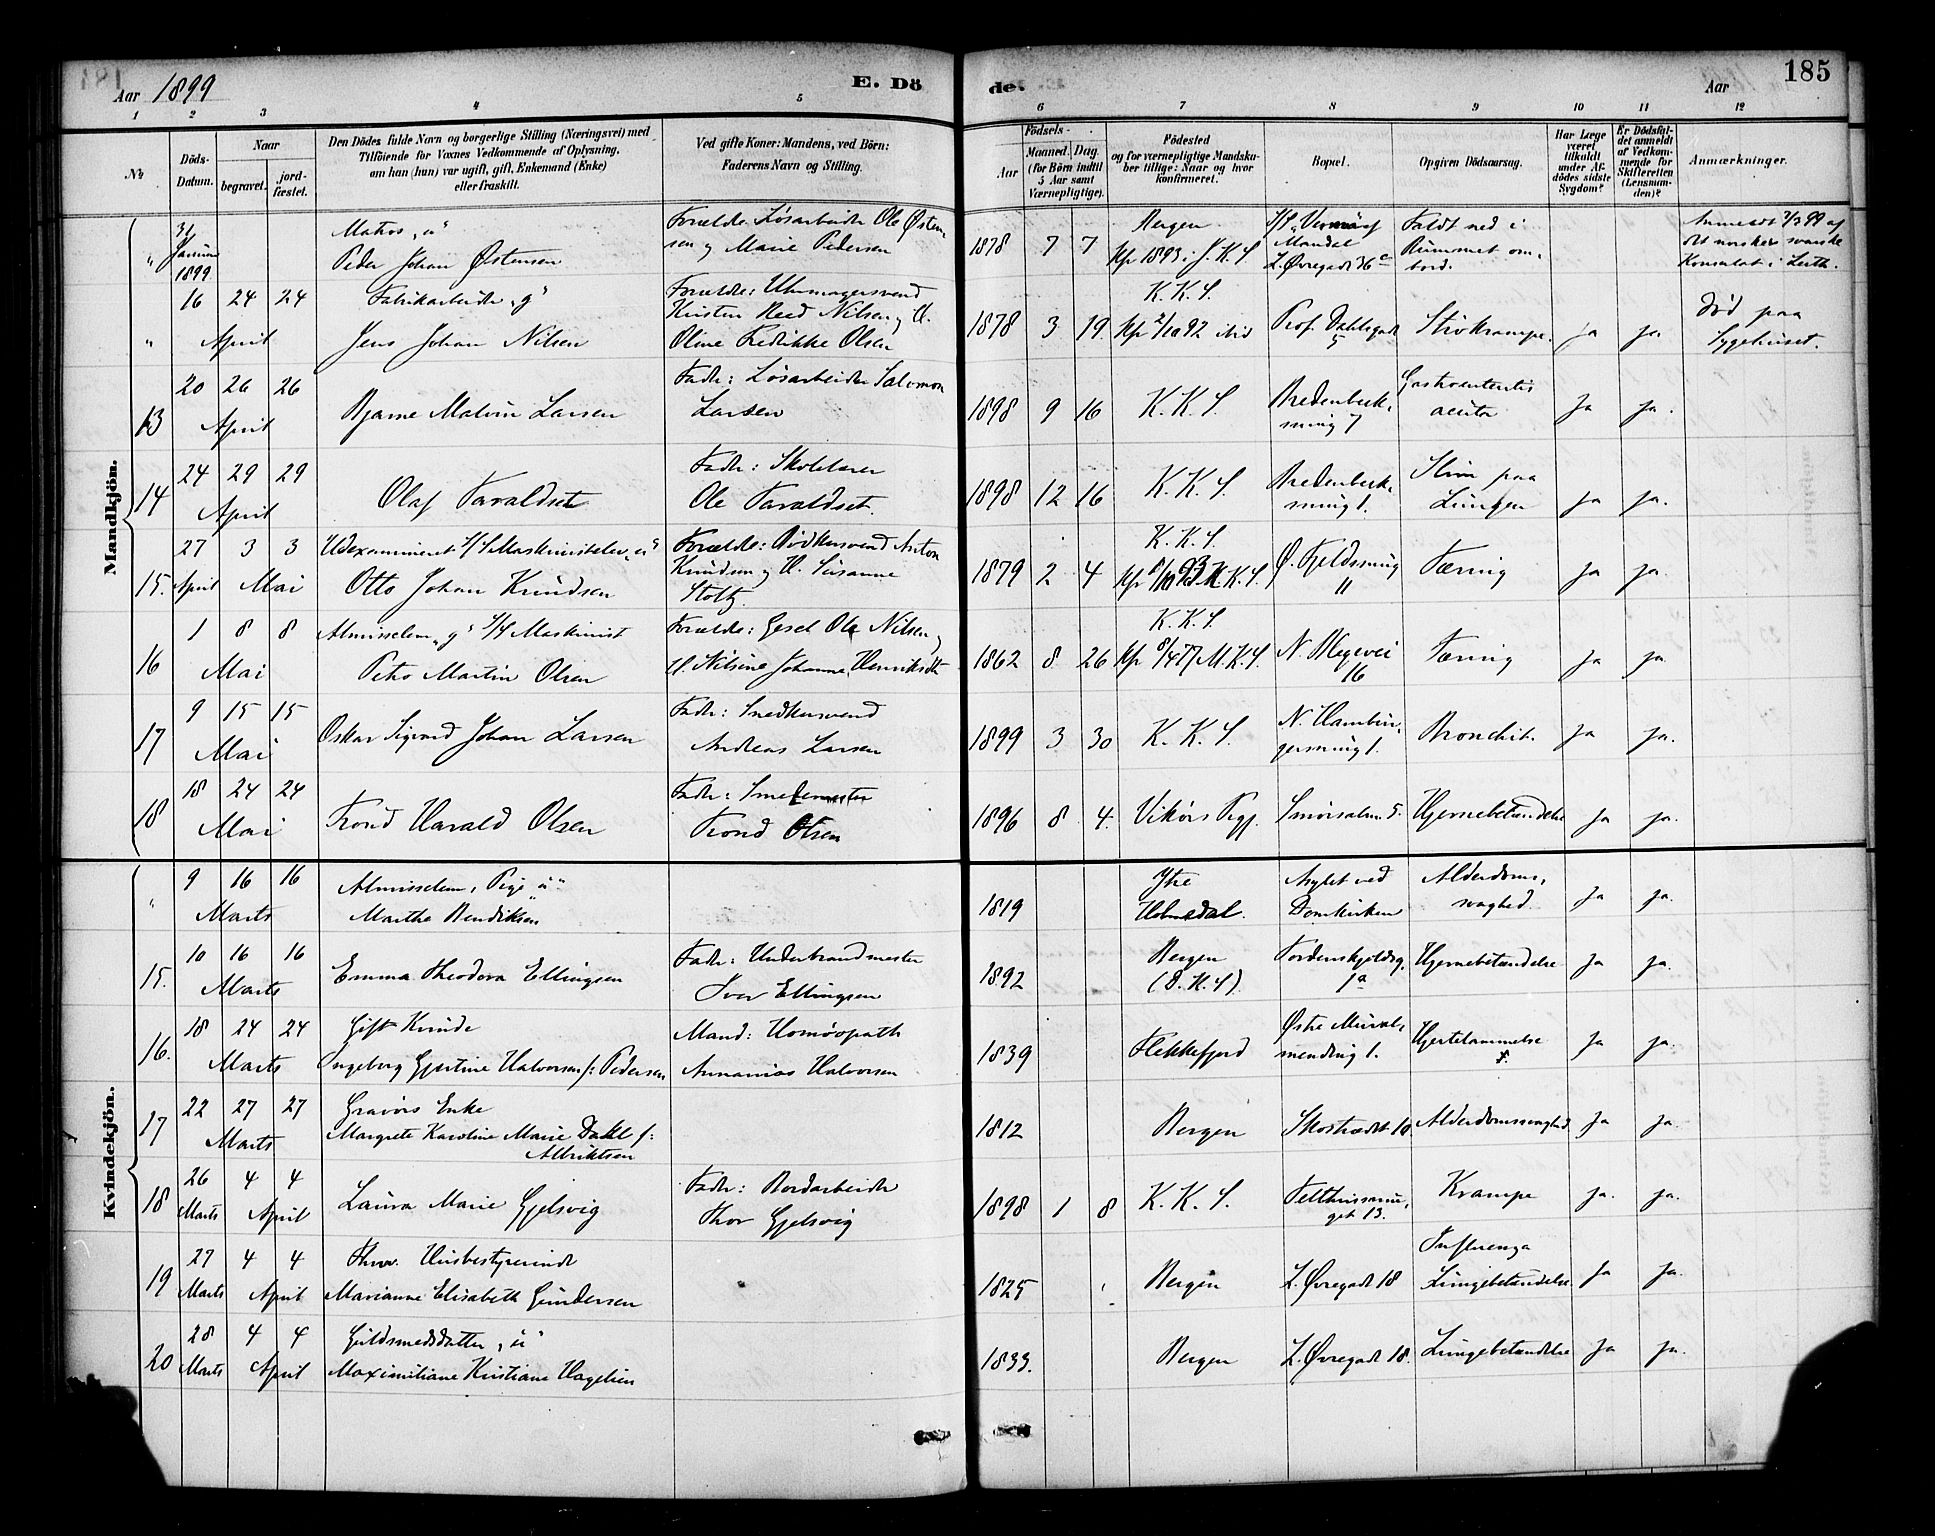 Aar 1899
E. Dö
de.
Aar
185
1 2 3 4 5 6 7 8 9 10 11 12
No
Döds-Datum.
Naar
begravet.
jord-fæstet.
Den Dödes fulde Navn og borgerlige Stilling (Næringsvei) med
Tilföiende for Voxnes Vedkommende af Oplysning,
om han (hun) var ugift, gift, Enkemand (Enke)
eller fraskilt.
Ved gifte Koner: Mandens, ved Börn:
Faderens Navn og Stilling.
Födsels-
Aar
Maaned. Dag.
(for Börn indtil
5 Aar samt
Værnepligtige).
Födested
og for værnepligtige Mandska-
ber tillige: Naar og hvor
konfirmeret.
Bopæl.
Opgiven Dödsaarsag.
Har Læge
været
tilkaldt
under Af-
dödes sidste
Sygdom?
Er Dödsfal-
det anmeldt
af Vedkom-
mende for
Skifteretten
(Lensman-
den)?
Anmærkninger.
Mandkjön.
" 31 Januar 1899
Matros "u"
Peder Johan Østensen
Forældre: Løsarbeider Ole Østen-
sen og Marie Pedersen
1878 7 7
Bergen
Kp 1893 i J. K. S
Mandal
L. Øvregade 36 c
Faldt ned i
Rummet om-
bord.
Anmeldt 7/3 99 af
det norske svenske
Konsulat i Leith.
" 16 24 24
April
Fabrikarbeider "g"
Jens Johan Nilsen
Forældre: Uhrmagersvend
Kirsten Reed Nilsen og H.
Oline Fredrikke Olsen
1878 3 19
K. K. S.
Kp 2/10 92 ibid
Prof. Dahlsgade
5
Stivkrampe.
ja ja.
Död paa
Sygehuset.
13 20 26 26
April
Bjarne Malvin Larsen
Fader: Løsarbeider Salomon
Larsen
1898 9 16
K. K. S.
Bredenbecks-
smug 7
Gastroenteritis
acuta
ja ja.
14 24 29 29
April
Olaf Taraldset
Fader: Skolelærer
Ole Taraldset.
1898 12 16
K. K. S.
Bredenbecks-
smug 1.
Slim paa
Lungen
ja ja.
15. 27 3 3
April Mai
Udexamineret S/S Maskinistelev "u"
Otto Johan Knudsen
Forældre: Bødkersvend Anton
Knudsen og H. Susanne
Stoltz.
1879 2 4
K. K. S.
Kp 8/10 93 K. K. S.
Ø. Fjeldsmug
11
Tæring
ja ja.
16 1 8 8
Mai
Almisselem "g" S/S Maskinist
Peter Martin Olsen
Forældre: Gesel Ole Nilsen og
H. Nilsine Johanne Henriksdtr
1862 8 26
K. K. S.
Kp 8/4 77 M. K. S.
N. Blegevei
16
Tæring
ja ja.
17 9 15 15
Mai
Oskar Sigvard Johan Larsen
Fader: Snedkersvend
Andreas Larsen
1899 3 30
K. K. S.
N. Hambur-
gersmug 1.
Bronchit.
ja ja.
18 18 24 24
Mai
Trond Harald Olsen
Fader: Smedemester
Trond Olsen
1896 8 4.
Vikörs Prgj.
Smörsalm. 5.
Hjernebetændelse
ja ja.
Kvindekjön.
" 9 16 16
Marts
Almisselem, Pige "u"
Marthe Bendiksen
1819
Ytre
Holmedal.
Asylet ved
Domkirken
Alderdoms-
svaghed.
ja ja.
15. 10 16 16
Marts
Emma Theodora Ellingsen
Fader: Underbrandmester
Iver Ellingsen
1892
Bergen
(D. K. S).
Tordenskjoldsg.
1a
Hjernebetændelse
ja ja.
16. 18 24 24
Marts
Gift Kvinde
Ingeborg Gjertine Halvorsen f: Pedersen
Mand: Homöopath
Annanias Halvorsen
1839
Flekkefjord
Østre Mural-
mending 1.
Hjertelammelse
ja ja.
17 22 27 27
Marts
Gravörs Enke
Margrete Karoline Marie Dahl f:
Albriktsen
1812
Bergen
Skostrædet 10
Alderdomssvaghed
ja ja.
18 26 4 4
Marts April
Laura Marie Gjelsvig
Fader: Bordarbeider
Thor Gjelsvig
1898 1 8
K. K. S.
Felthussmu-
get 13.
Krampe
ja. ja.
19 27 4 4
Marts April
Husbestyrerinde
Marianne Elisabeth Gundersen
1825
Bergen
L. Øvregade 18
Influenza
Lungebetændelse
ja ja.
20 28 4 4
Marts April
Guldsmedsdatter "u"
Maximiliane Kristiane Hagelien
1833.
Bergen
L. Øvregade 18.
Lungebetændelse
ja ja.